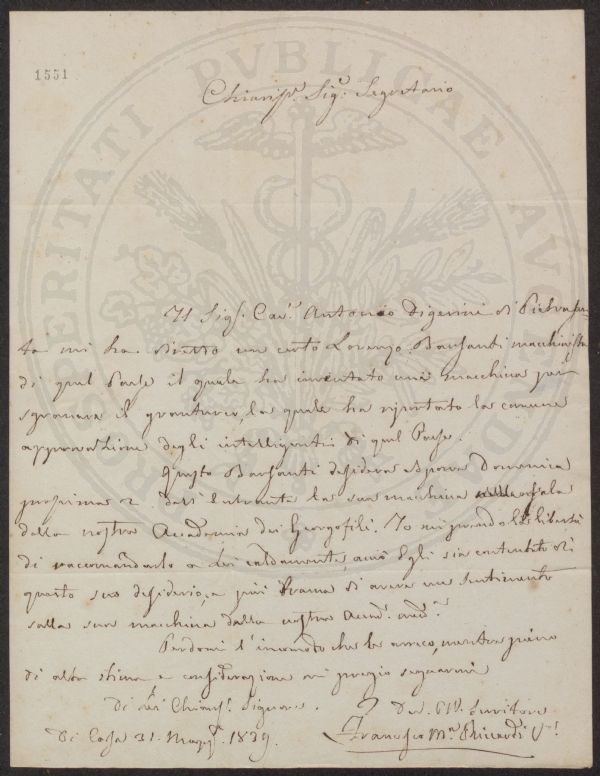 1551
Chiariss.º Sig.r Segretario
Il Sig.r Cav.e Antonio Digerini di Pietrasan-
ta mi ha diretto un certo Lorenzo Barsanti macchinista
di quel Paese il quale ha inventato una macchina per
sgranare il granturco, la quale ha riportato la comune
approvazione degli intelligenti di quel Paese.
Questo Barsanti desidera esporre Domenica
prossima 2 dell'Entrante la sua macchina nella sala
della nostra Accademia dei Georgofili. Io mi prendo la libertà
di raccomandarlo a Lei caldamente, acciò Egli sia contentato di
questo suo desiderio, e più brama di avere un sentimento
sulla sua macchina dalla nostra Accad.
Perdoni l'incomodo che le arreco, mentre pieno
di alta stima e considerazione mi pregio segnarmi
Di Lei Chiariss.º Signore
Di Casa 31. Magg.º 1839.
Dev. Obb. Servitore
Francesco M.a Riccardi
PROSPERITATI PVBLICAE AVGENDAE